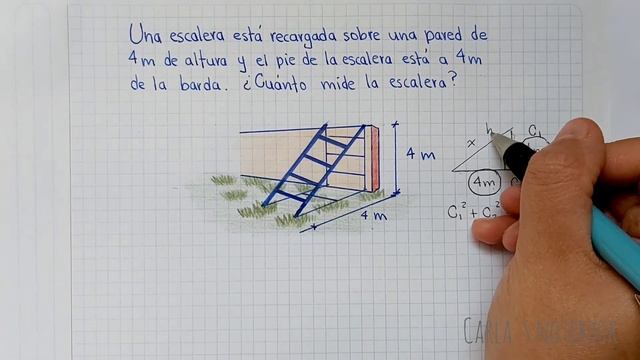 Una escalera está recargada sobre una pared de
4m de altura y el pie de la escalera está a 4m
de la barda. ¿Cuánto mide la escalera?
h C₁
x
4 m
4m
4 m
C₁² + C₂²